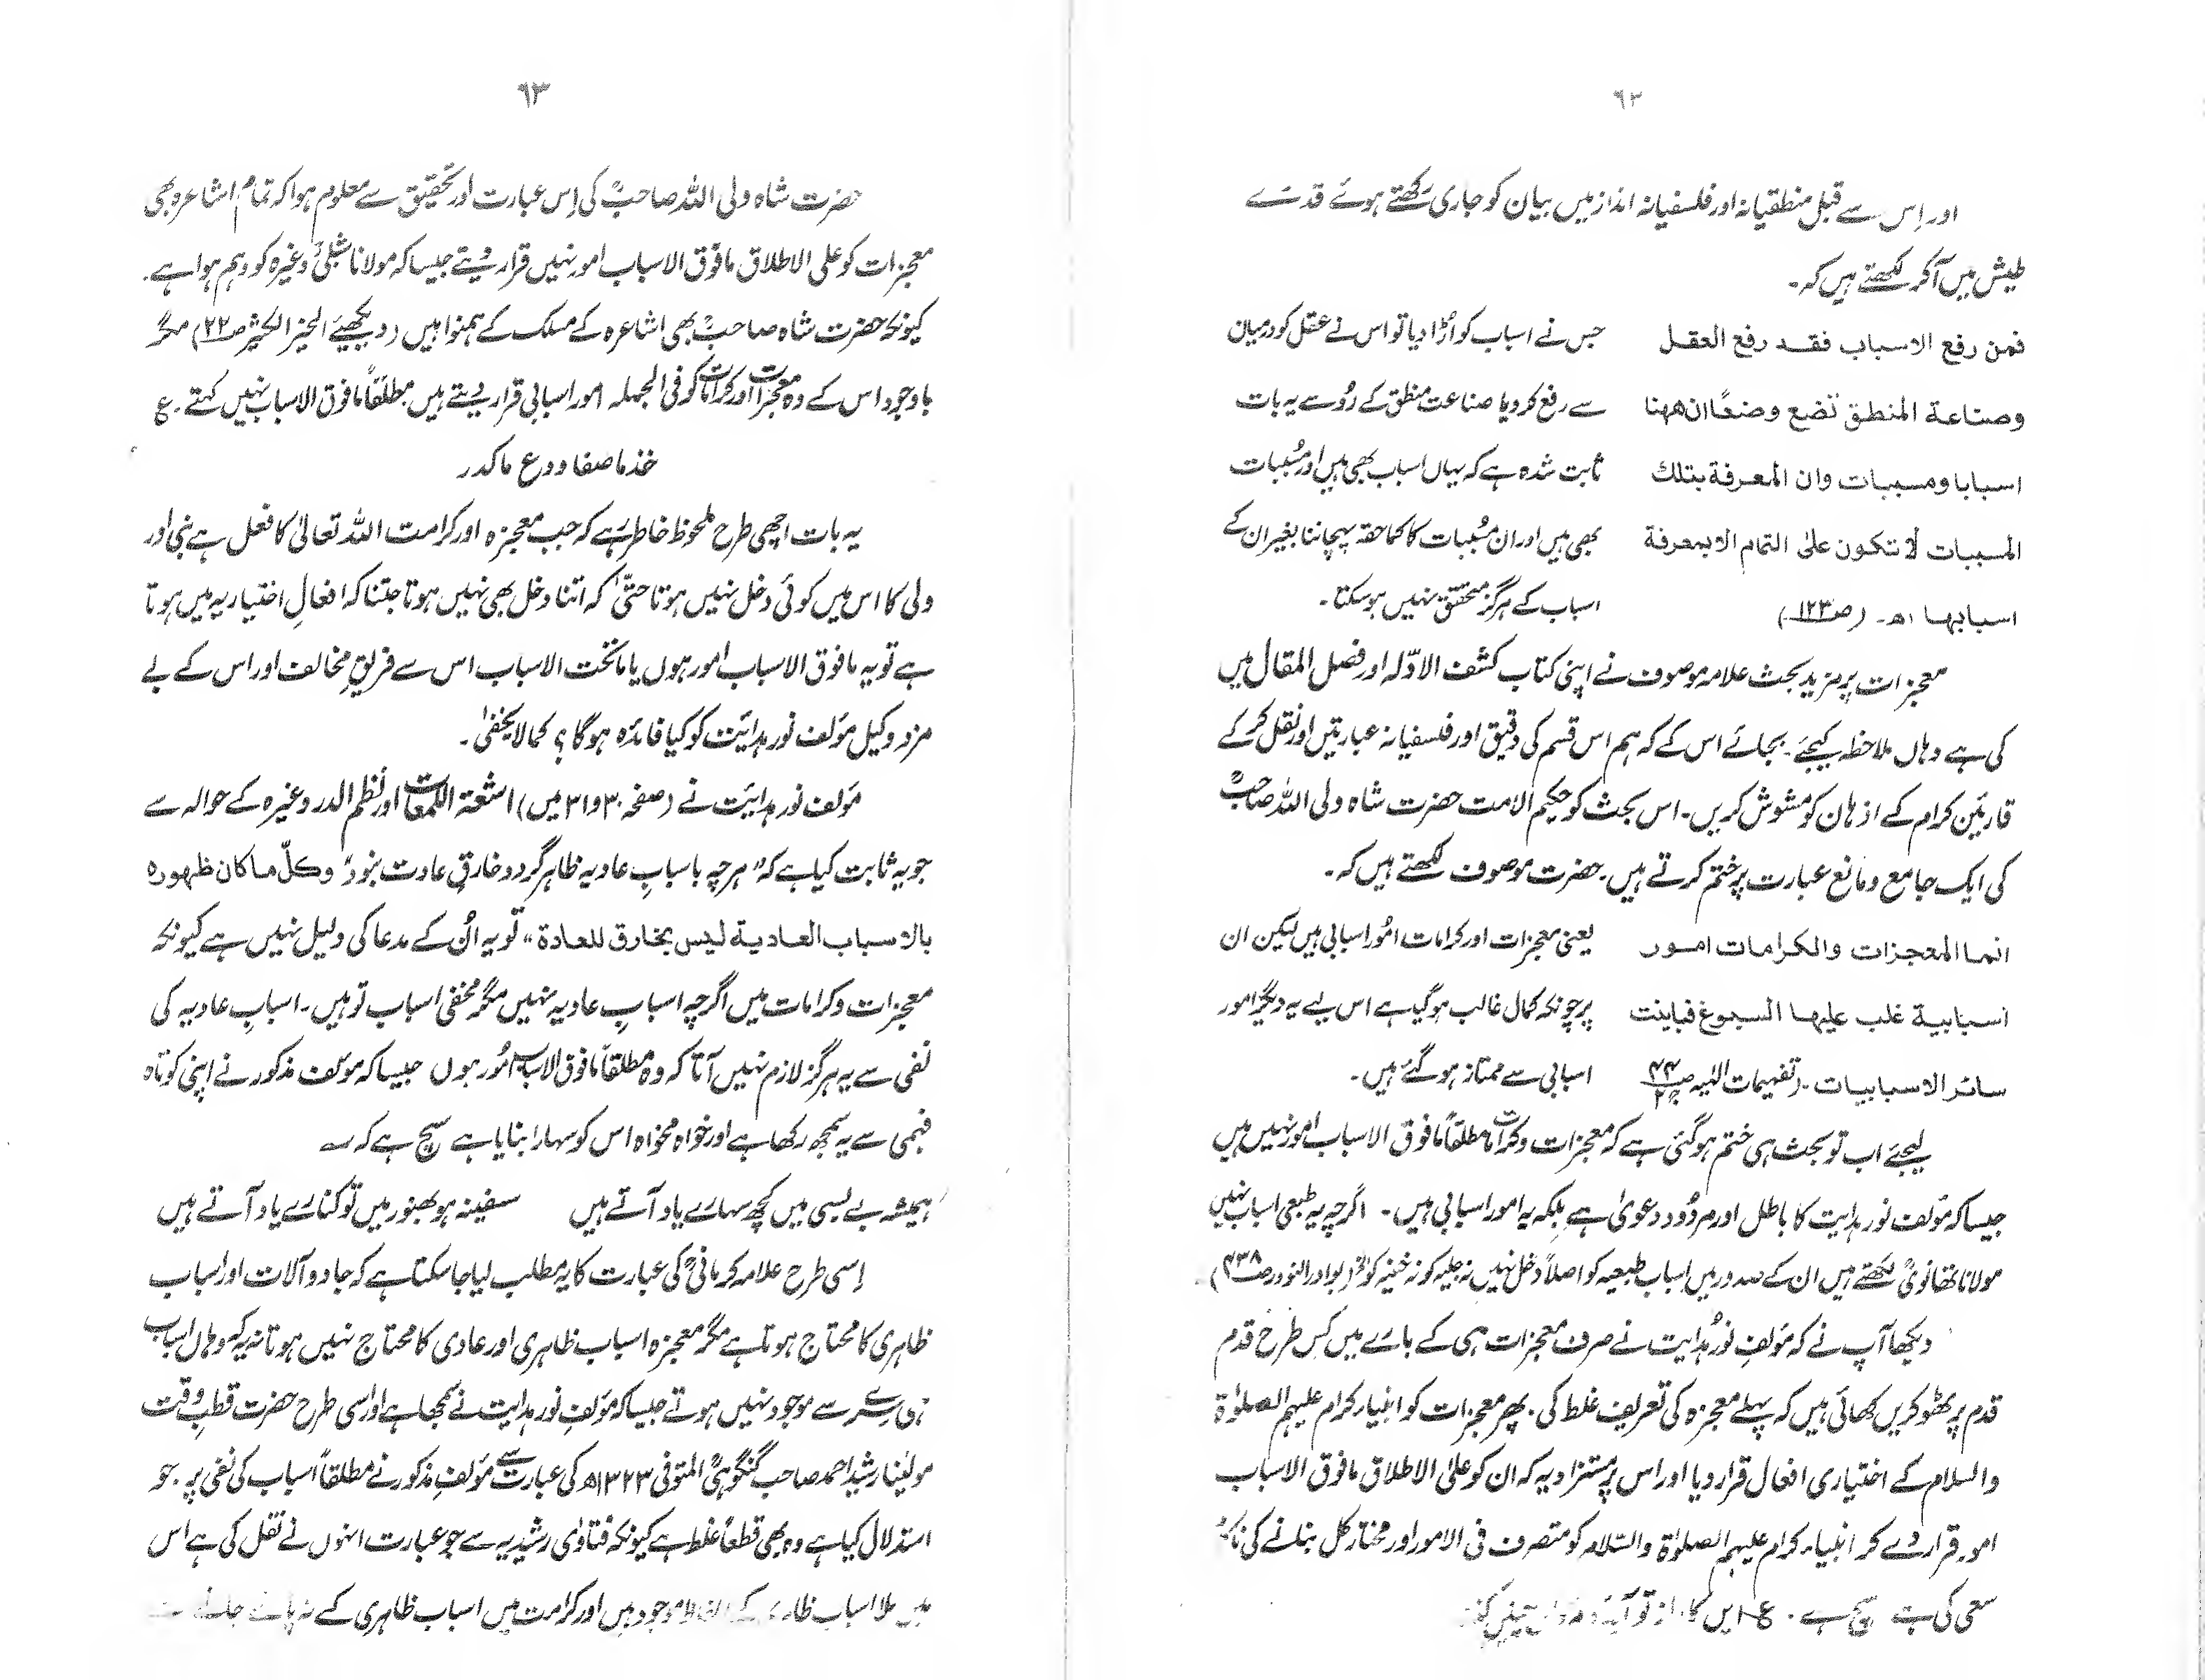 ٦٢
اور اِس سے قبل منطقیانہ اور فلسفیانہ انداز میں بیان کو جاری رکھتے ہوئے قدرے
طیش میں آکر لکھتے ہیں کہ۔
فمن رفع الاسباب فقد رفع العقل
وصناعة المنطق تضع وضعًا ان ههنا
اسبابا ومسببات وان المعرفة بتلك
المسببات لا تكون على التمام الا بمعرفة
اسبابها اھ۔ (ص١٢٣)
جس نے اسباب کو اُڑا دیا تو اس نے عقل کو درمیان
سے رفع کر دیا صناعت منطق کے رُو سے یہ بات
ثابت شدہ ہے کہ یہاں اسباب بھی ہیں اور مسُببات
بھی ہیں اور ان مسُببات کا کما حقہ پہچاننا بغیر ان کے
اسباب کے ہرگز متحقق نہیں ہو سکتا۔
معجزات پر مزید بحث علامہ موصوف نے اپنی کتاب کشف الادّلہ اور فصل المقال میں
کی ہے وہاں ملاحظہ کیجئے۔ بجائے اس کے کہ ہم اس قسم کی دقیق اور فلسفیانہ عبارتیں اور نقل کر کے
قارئین کرام کے اذہان کو مشوش کریں۔ اس بحث کو حکیم الامت حضرت شاہ ولی اللہ صاحبؒ
کی ایک جامع و مانع عبارت پر ختم کرتے ہیں۔ حضرت موصوف لکھتے ہیں کہ۔
انما المعجزات والكرامات امور
اسبابية غلب عليها السبوغ فباينت
سائر الاسبابيات۔ (تفہیمات الٰہیہ ص۴۴ ج۲
یعنی معجزات اور کرامات امُور اسبابی ہیں لیکن ان
پر چونکہ کمال غالب ہو گیا ہے اس لیے یہ دیگر امور
اسبابی سے ممتاز ہو گئے ہیں۔
لیجئے اب تو بحث ہی ختم ہو گئی ہے کہ معجزات و کرامات مطلقاً مافوق الاسباب امور نہیں ہیں
جیسا کہ مؤلف نور ہدایت کا باطل اور مردُود دعویٰ ہے بلکہ یہ امور اسبابی ہیں۔ اگرچہ یہ طبعی اسباب نہیں
مولانا تھانویؒ لکھتے ہیں ان کے صدور میں اسباب طبعیہ کو اصلاً دخل نہیں نہ جلیہ کو نہ خفیہ کو (بوادر النوادر ص۴۳۸)۔
دیکھا آپ نے کہ مؤلفِ نورُ ہدایت نے صرف معجزات ہی کے بارے میں کِس طرح قدم
قدم پر ٹھوکریں کھائی ہیں کہ پہلے معجزہ کی تعریف غلط کی۔ پھر معجزات کو انبیاء کرام علیہم الصلوٰۃ
والسلام کے اختیاری افعال قرار دیا اور اس پر مستزاد یہ کہ ان کو علیٰ الاطلاق مافوق الاسباب
امور قرار دے کر انبیاء کرام علیہم الصلوٰۃ والسّلام کو متصرف فی الامور اور مختار کل بنانے کی
سعی کی ہے سچ ہے۔ ع ایں کار از تو آید و
٦٣
حضرت شاہ ولی اللہ صاحبؒ کی اِس عبارت اور تحقیق سے معلوم ہوا کہ تمام اشاعرہ بھی
معجزات کو علی الاطلاق مافوق الاسباب امور نہیں قرار دیتے جیسا کہ مولانا شبلیؒ وغیرہ کو وہم ہوا ہے۔
کیونکہ حضرت شاہ صاحبؒ بھی اشاعرہ کے مسلک کے ہمنوا ہیں (دیکھیئے الخیر الکثیر ص٢٢) مگر
باوجود اس کے وہ معجزات اور کرامات کو فی الجملہ امور اسبابی قرار دیتے ہیں مطلقاً مافوق الاسباب نہیں کہتے۔ ع
خذ ما صفا و دع ما کدر
یہ بات اچھی طرح ملحوظ خاطر رہے کہ جب معجزہ اور کرامت اللہ تعالیٰ کا فعل ہے نبی اور
ولی کا اس میں کوئی دخل نہیں ہوتا حتّیٰ کہ اتنا دخل بھی نہیں ہوتا جتنا کہ افعالِ اختیاریہ میں ہوتا
ہے تو یہ مافوق الاسباب امور ہوں یا ماتحت الاسباب اس سے فریقِ مخالف اور اس کے بے
مزد وکیل مؤلف نور ہدایت کو کیا فائدہ ہوگا؟ کما لا یخفیٰ۔
مؤلف نور ہدایت نے (صفحہ ۳۰ و ۳۱ میں) اشعۃ اللمعات اور نظم الدرر وغیرہ کے حوالہ سے
جو یہ ثابت کیا ہے کہ "ہرچہ باسبابِ عادیہ ظاہر گردد خارقِ عادت نبود" وکلّ ما كان ظهوره
بالاسباب العادية ليس بخارق للعادة" تو یہ اُن کے مدعا کی دلیل نہیں ہے کیونکہ
معجزات و کرامات میں اگرچہ اسبابِ عادیہ نہیں مگر مخفی اسباب تو ہیں۔ اسبابِ عادیہ کی
نفی سے یہ ہرگز لازم نہیں آتا کہ وہ مطلقاً مافوق الاسباب امُور ہوں جیسا کہ مؤلف مذکور نے اپنی کوتاہ
فہمی سے یہ سمجھ رکھا ہے اور خواہ مخواہ اس کو سہارا بنایا ہے سچ ہے کہ ؎
ہمیشہ بے بسی میں کچھ سہارے یاد آتے ہیں سفینہ ہو بھنور میں تو کنارے یاد آتے ہیں
اِسی طرح علامہ کرمانیؒ کی عبارت کا یہ مطلب لیا جا سکتا ہے کہ جادو آلات اور اسباب
ظاہری کا محتاج ہوتا ہے مگر معجزہ اسباب ظاہری اور عادی کا محتاج نہیں ہوتا نہ یہ کہ وہاں اسباب
ہی سِرے سے موجود نہیں ہوتے جیسا کہ مؤلفِ نور ہدایت نے سمجھا ہے اور اسی طرح حضرت قطبِ وقت
مولٰینا رشید احمد صاحب گنگوہیؒ المتوفی ۱۳۲۳ھ کی عبارت سے مؤلفِ مذکور نے مطلقاً اسباب کی نفی پر۔ جو
استدلال کیا ہے وہ بھی قطعاً غلط ہے کیونکہ فتاوٰی رشیدیہ سے جو عبارت انہوں نے نقل کی ہے اُس
میں بلا اسباب ظاہری کے الفاظ موجود ہیں اور کرامت میں اسباب ظاہری کے نہ پائے جانے سے